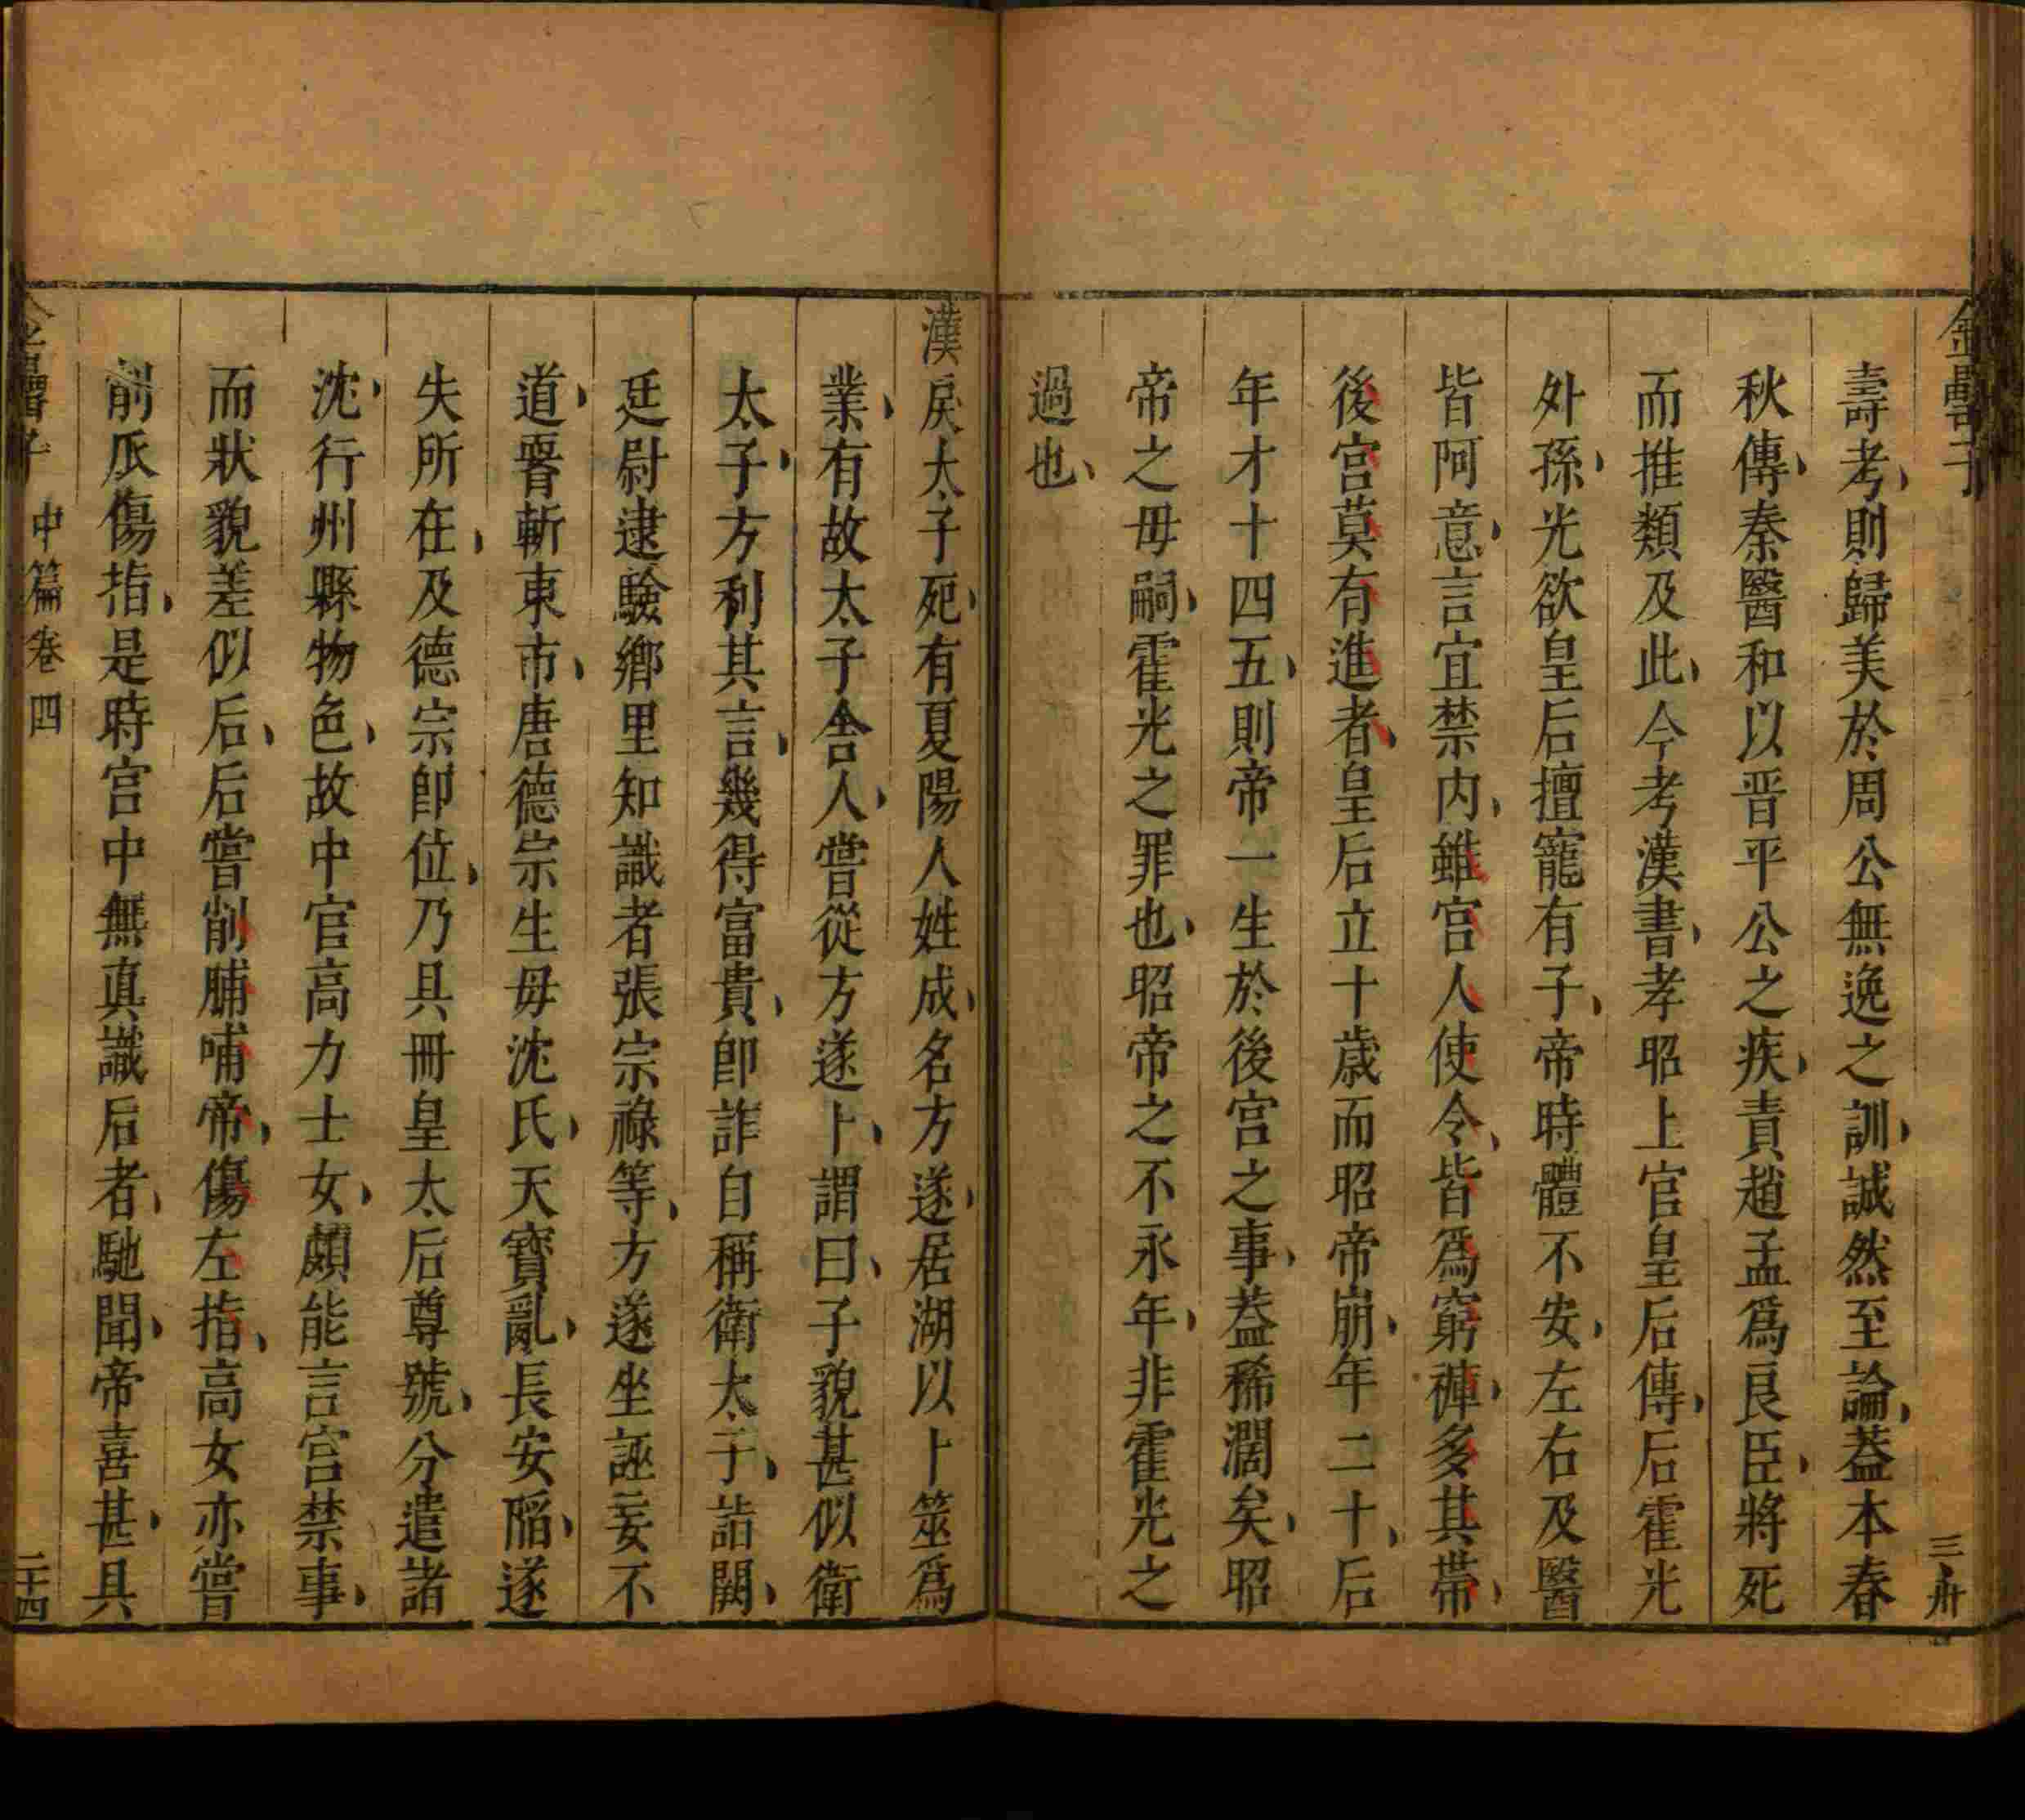 金罍子
三卅
壽考、則歸美於周公無逸之訓、誠然至論、葢本春
秋傳、秦醫和以晋平公之疾、責趙孟爲良臣、將死
而推類及此、今考漢書、孝昭上官皇后傳、后霍光
外孫、光欲皇后擅寵有子、帝時體不安、左右及醫
皆阿意、言宜禁内、雖宮人使令、皆爲窮褲、多其帶、
後宮莫有進者、皇后立十歲而昭帝崩、年二十、后
年才十四五、則帝一生於後宮之事、葢稀濶矣、昭
帝之毋嗣、霍光之罪也、昭帝之不永年、非霍光之
過也、
漢戾太子死、有夏陽人姓成、名方遂、居湖以卜筮爲
業、有故太子舍人、嘗從方遂卜、謂曰、子貌甚似衛
太子、方利其言、幾得富貴、卽詐自稱衛太子、詣闕、
廷尉逮驗鄉里知識者張宗祿等、方遂坐誣妄不
道、䁂斬東市、唐德宗生毋沈氏、天寶亂、長安陷、遂
失所在、及德宗卽位、乃具冊皇太后尊號、分遣諸
沈、行州縣物色、故中官高力士女、頗能言宮禁事、
而狀貌差似后、后嘗削脯哺帝、傷左指、高女亦嘗
削瓜傷指、是時宮中無真識后者、馳聞、帝喜甚、具
金罍子 中篇卷四 二十四